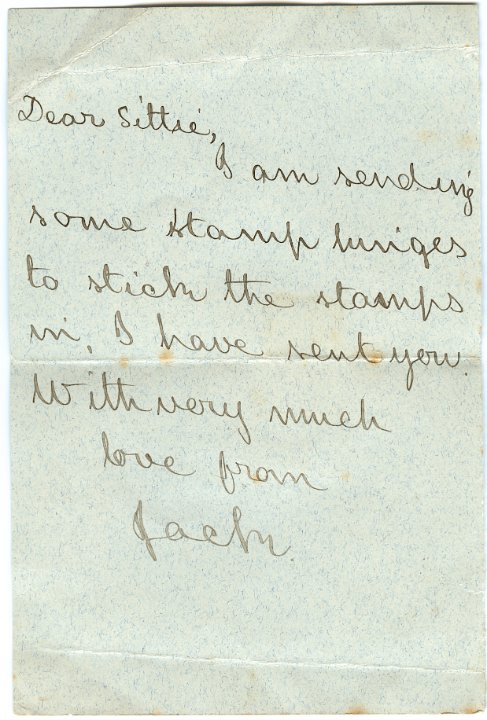 Dear Sittie,
I am sending
some stamp hinges
to stick the stamps
in, I have sent you.
With very much
love from
Jack.